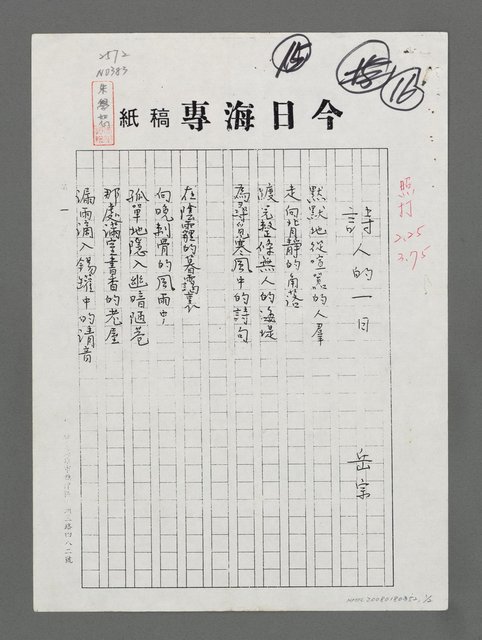 2572
N0383
15
16
今日海專稿紙
照打
2.25
3.75
詩人的一日
岳宗
默默地從喧囂的人羣
走向背靜的角落
踱完整條無人的海堤
為尋覓寒風中的詩句
在陰霾的暮靄裏
向晚刺骨的風雨中
孤單地隱入幽暗陋巷
那處滿室書香的老屋
漏雨滴入錫罐中的清音
第
一